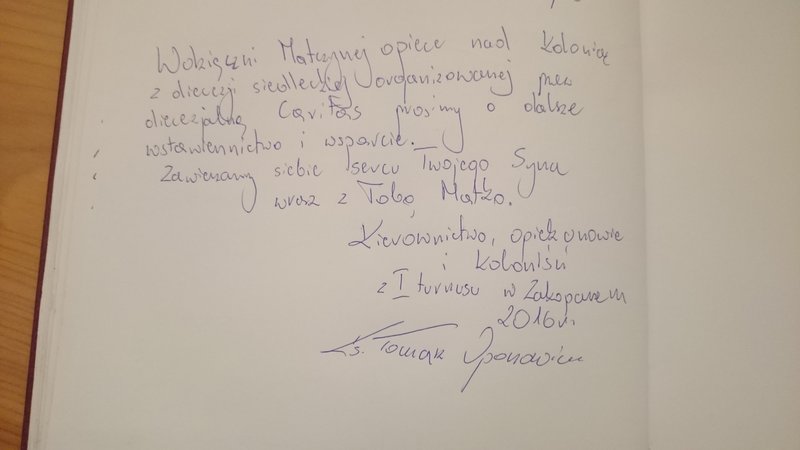 Wdzięczni Matczynej opiece nad kolonią
z diecezji siedleckiej organizowanej przez
diecezjalną Caritas prosimy o dalsze
wstawiennictwo i wsparcie.
Zawierzamy siebie sercu Twojego Syna
wraz z Tobą Matko.
Kierownictwo, opiekunowie
i koloniści
z I turnusu w Zakopanem
2016 r.
Ks. Tomasz